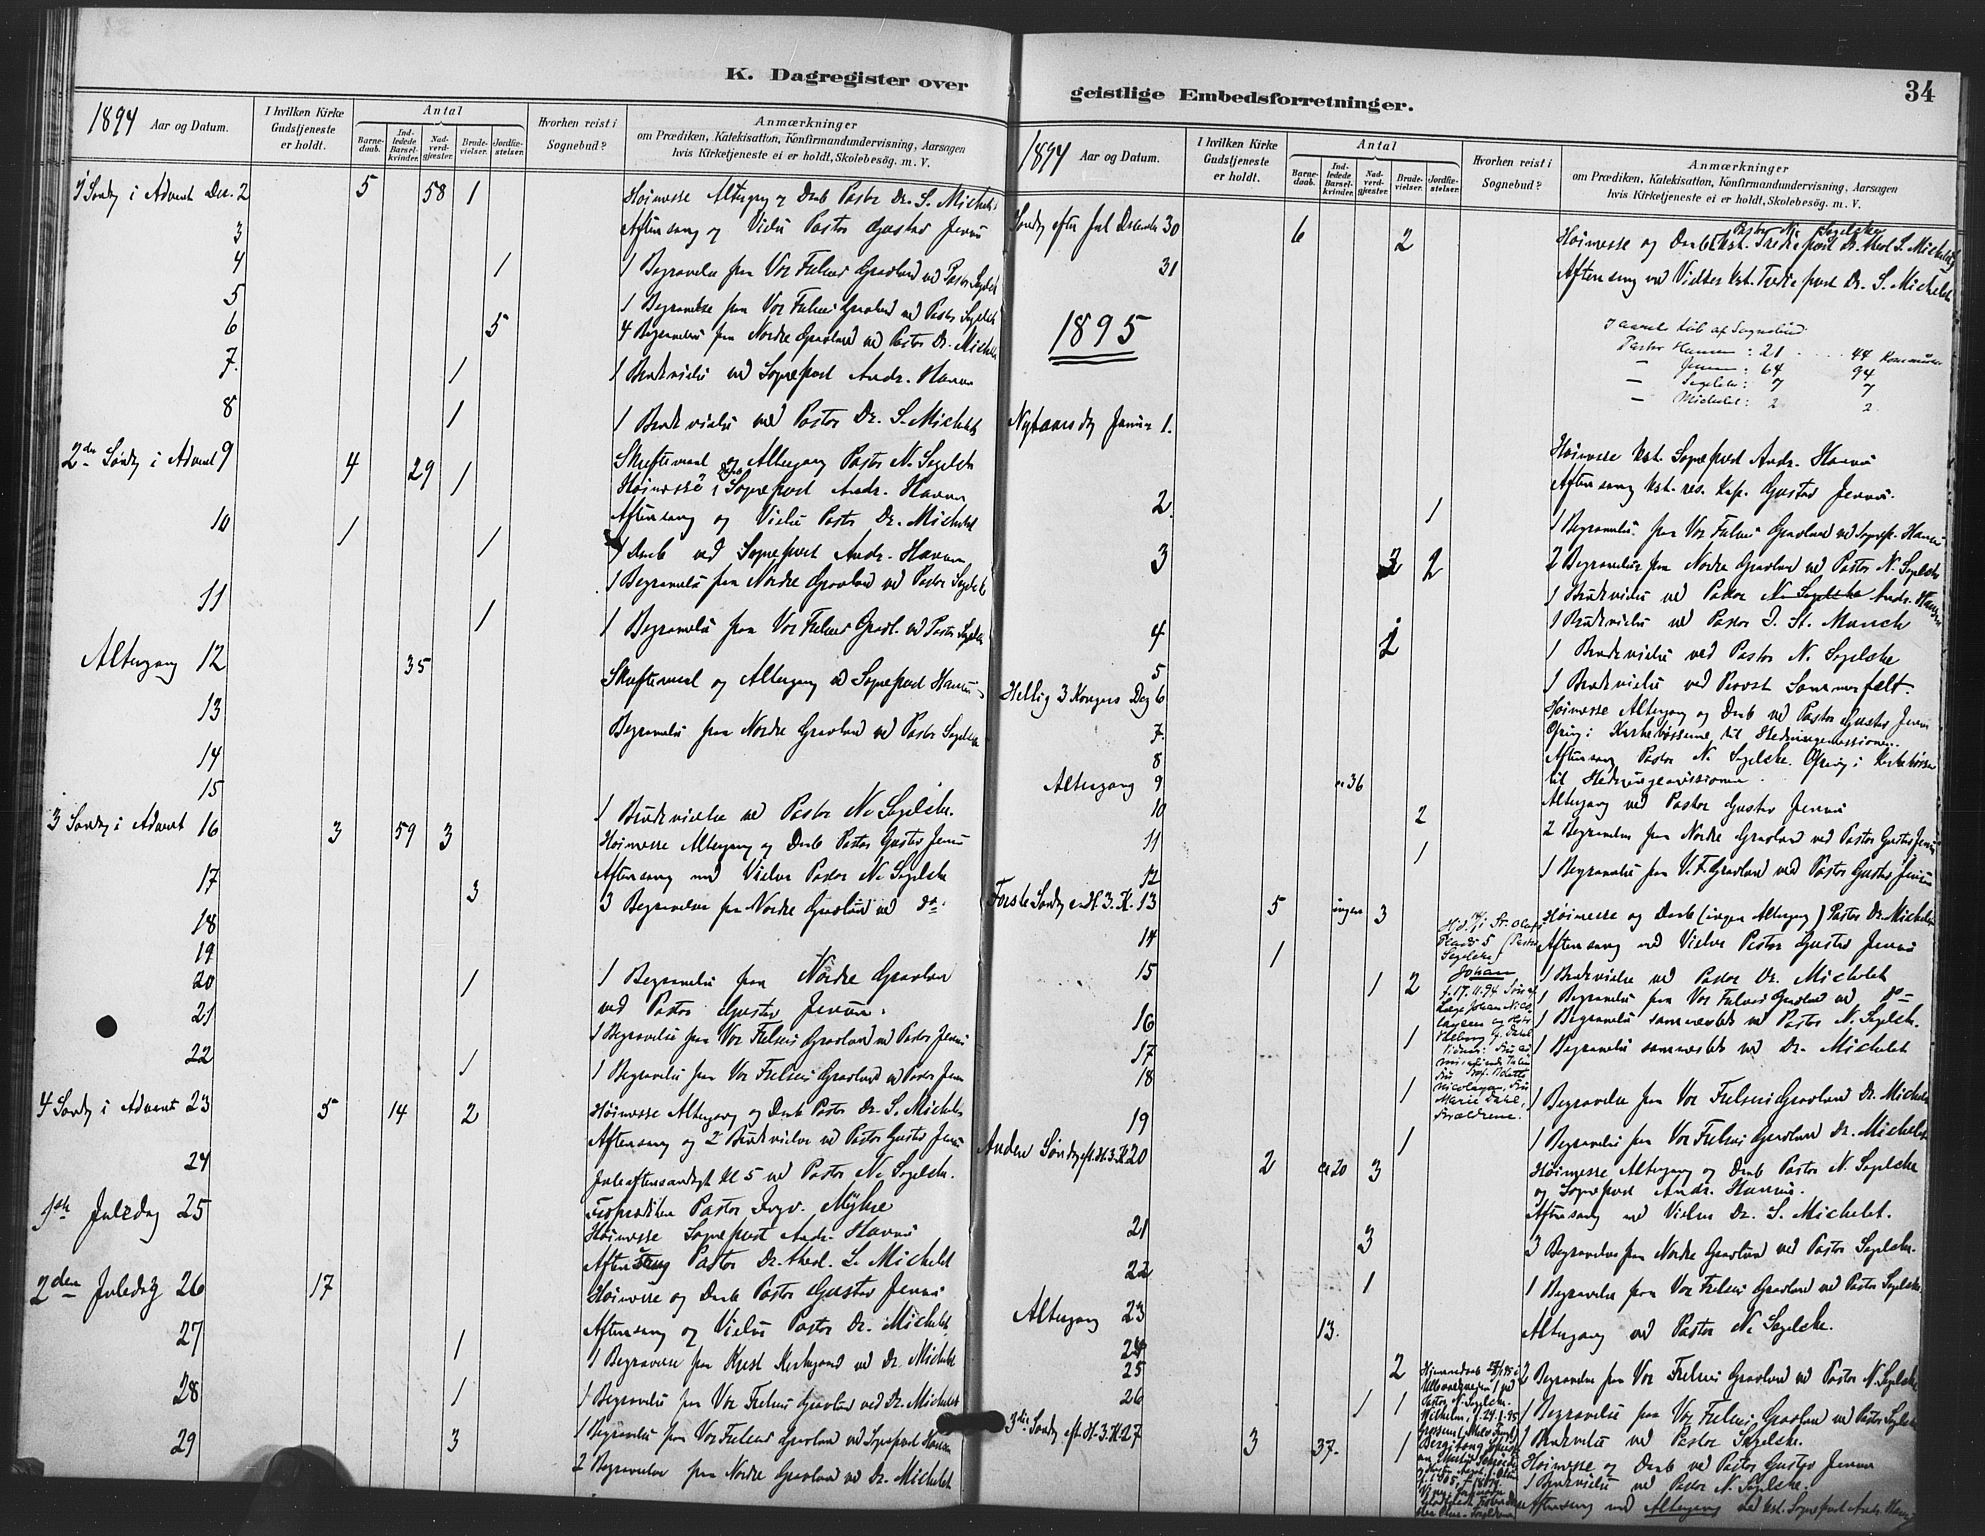 K. Dagregister over
1894 Aar og Datum.
I hvilken Kirke Gudstjeneste er holdt.
Antal
Barnedaab.
Indledede Barselkvinder.
Nadverdgjester.
Brudevielser.
Jordfæstelser.
Hvorhen reist i Sognebud?
Anmærkninger
om Prædiken, Katekisation, Konfirmandundervisning, Aarsagen
hvis Kirketjeneste ei er holdt, Skolebesøg. m. V.
1 Søndg i Advent Dec. 2 5 58 1 Høimesse Altergang & Daab Pastor Dr. S. Michelet
3 Aftensang og Vielse Pastor Gustav Jensen
4 1 1 Begravelse fra Vor Frelsers Gravlund ved Pastor Segelcke
5 1 Begravelse fra Vor Frelsers Gravlund ved Pastor Segelcke
6 5 4 Begravelser fra Nordre Gravlund ved Pastor Dr. Michelet
7. 1 1 Brudevielse ved Sogneprest Andr. Hansen
8 1 1 Brudevielse ved Pastor Dr. S. Michelet
2den Søndg i Advent 9 4 29 1 Skriftemaal og Altergang Pastor N. Segelcke
Høimesse & Daab Sogneprest Andr. Hansen
Aftensang og Vielse Pastor Dr. Michelet
10 1 1 1 Daab ved Sogneprest Andr. Hansen
1 Begravelse fra Nordre Gravlund ved Pastor Segelcke
11 1 1 Begravelse fra Vor Frelsers Gravl. ved Pastor Segelcke
Altergang 12 35 Skriftemaal og Altergang ved Sogneprest Hansen
13 Begravelse fra Nordre Gravlund ved Pastor Segelcke
14
15 1 Brudevielse ved Pastor N. Segelcke.
3 Søndg i Advent 16 3 59 3 Høimesse Altergang og Daab Pastor Gustav Jensen
Aftensang med Vielse Pastor N. Segelcke
17 3 3 Begravelser fra Nordre Gravlund ved do.
18
19
20 1 1 Begravelse fra Nordre Gravlund
ved Pastor Gustav Jensen.
21 1 Begravelse fra Vor Frelsers Gravlund ved Pastor Jensen
22 1 1 Begravelse fra Vor Frelsers Gravlund ved Pastor Jensen
4 Søndg i Advent 23 5 14 2 Høimesse Altergang og Daab Pastor Dr. S. Michelet
Aftensang og 2 Brudevielser ved Pastor Gustav Jensen
24 Juleaftensandagt Kl 5 ved Pastor N. Segelcke.
1ste Juledag 25 Froprædiken Pastor Ingv. Myhre
Høimesse Sogneprest Andr. Hansen
Aftensang Pastor Dr. theol. S. Michelet
2den Juledag 26 17 Høimesse og Daab Pastor Gustav Jensen
Aftensang og Vielse Pastor Dr. Michelet
27 1 1 Begravelse fra Krist Kirkegaard ved Dr. Michelet
28 1 1 Begravelse fra Vor Frelsers Gravlund ved Dr. Michelet
29 3 1 Begravelse fra Vor Frelsers Gravlund ved Sogneprest Hansen
2 Begravelser fra Nordre Gravlund ved Dr. Michelet
geistlige Embedsforretninger.
34
1894 Aar og Datum.
I hvilken Kirke Gudstjeneste er holdt.
Antal
Barnedaab.
Indledede Barselkvinder.
Nadverdgjester.
Brudevielser.
Jordfæstelser.
Hvorhen reist i Sognebud?
Anmærkninger
om Prædiken, Katekisation, Konfirmandundervisning, Aarsagen
hvis Kirketjeneste ei er holdt, Skolebesøg. m. V.
Pastor N. Segelcke
Søndg efter Jul December 30 6 2 Høimesse og Daab Kst. Tredieprest Dr. theol S. Michelet
31 Aftensang ved Vielser Kst. Tredieprest Dr. S. Michelet
I aarets Løb af Sognebud
Pastor Hansen : 21 44 Kommunikanter
— Jensen : 64 94
— Segelcke : 7 7
— Michelet : 2 2
1895
Nytaarsdag Januar 1. Høimesse Kst. Sogneprest Andr. Hansen
Aftensang Kst. res. Kap. Gustav Jensen.
2. 1 1 Begravelse fra Vor Frelsers Gravlund ved Sognepr. Hansen
3 2 2 2 Begravelser fra Nordre Gravlund ved Pastor N. Segelcke
1 Brudevielse ved Pastor N. Segelcke Andr. Hansen
1 Brudevielse ved Pastor J. St. Munch
4 1 1 Brudevielse ved Pastor N. Segelcke
5 1 Brudevielse ved Provst Sommerfelt.
Hellig 3 Kongers Dag 6 Høimesse Altergang og Daab ved Pastor Gustav Jensen
Ofring i Kirkebøsserne til Hedningemissionen.
7. Aftensang Pastor N. Segelcke. Ofring i Kirkebøssen
8 til Hedningemissionen.
Altergang 9 ca 36 Altergang ved Pastor Gustav Jensen
10 2 2 Begravelser fra Nordre Gravlund ved Pastor Gustav Jensen
11 1 1 Begravelse fra V. F. Gravlund ved Pastor Gustav Jensen
12
Første Søndg e. H. 3. K. 13 5 ingen 3 Høimesse og Daab (ingen Altergang) Pastor Dr. Michelet
14 1 Aftensang ved Vielser Pastor Gustav Jensen
15 1 2 1 Brudevielse ved Pastor Dr. Michelet
1 Begravelse fra Vor Frelsers Gravlund ved do
1 Begravelse sammesteds ved Pastor N. Segelcke.
16 1 1 Begravelse sammesteds ved Dr. Michelet
17
18 1 1 Begravelse fra Vor Frelsers Gravlund Dr. Michelet
St. Olafs
Plads 5 (Pastor
Segelcke)
Johan
f. 17.11.94
Marie Dahl,
Forældrene.
19 1 1 Begravelse fra Vor Frelsers Gravlund Dr. Michelet
Anden Søndg eft. H. 3. K. 20 2 ca 20 3 Høimesse Altergang og Daab Pastor N. Segelcke
og Sogneprest Andr. Hansen.
Aftensang med Vielser Dr. S. Michelet.
21 3 3 Begravelser fra Nordre Gravlund ved Pastor Segelcke.
22 1 1 Begravelse fra Vor Frelsers Gravlund ved Pastor Segelcke.
Altergang 23 13. Altergang ved Pastor N. Segelcke.
24
25 2 2 Begravelser fra Vor Frelsers Gravlund ved Pastor N. Segelcke
26 1 1 1 Begravelse fra Vor Frelsers Gravlund ved Pastor Segelcke
1 Brudevielse ved Pastor Segelcke.
3die Søndg eft. H. 3. K. 27 3 37. 1 Høimesse og Daab ved Pastor Gustav Jensen
1 Brudevielse ved Pastor N. Segelcke.
Aftensang med Altergang ved kst. Sogneprest Andr. Hansen